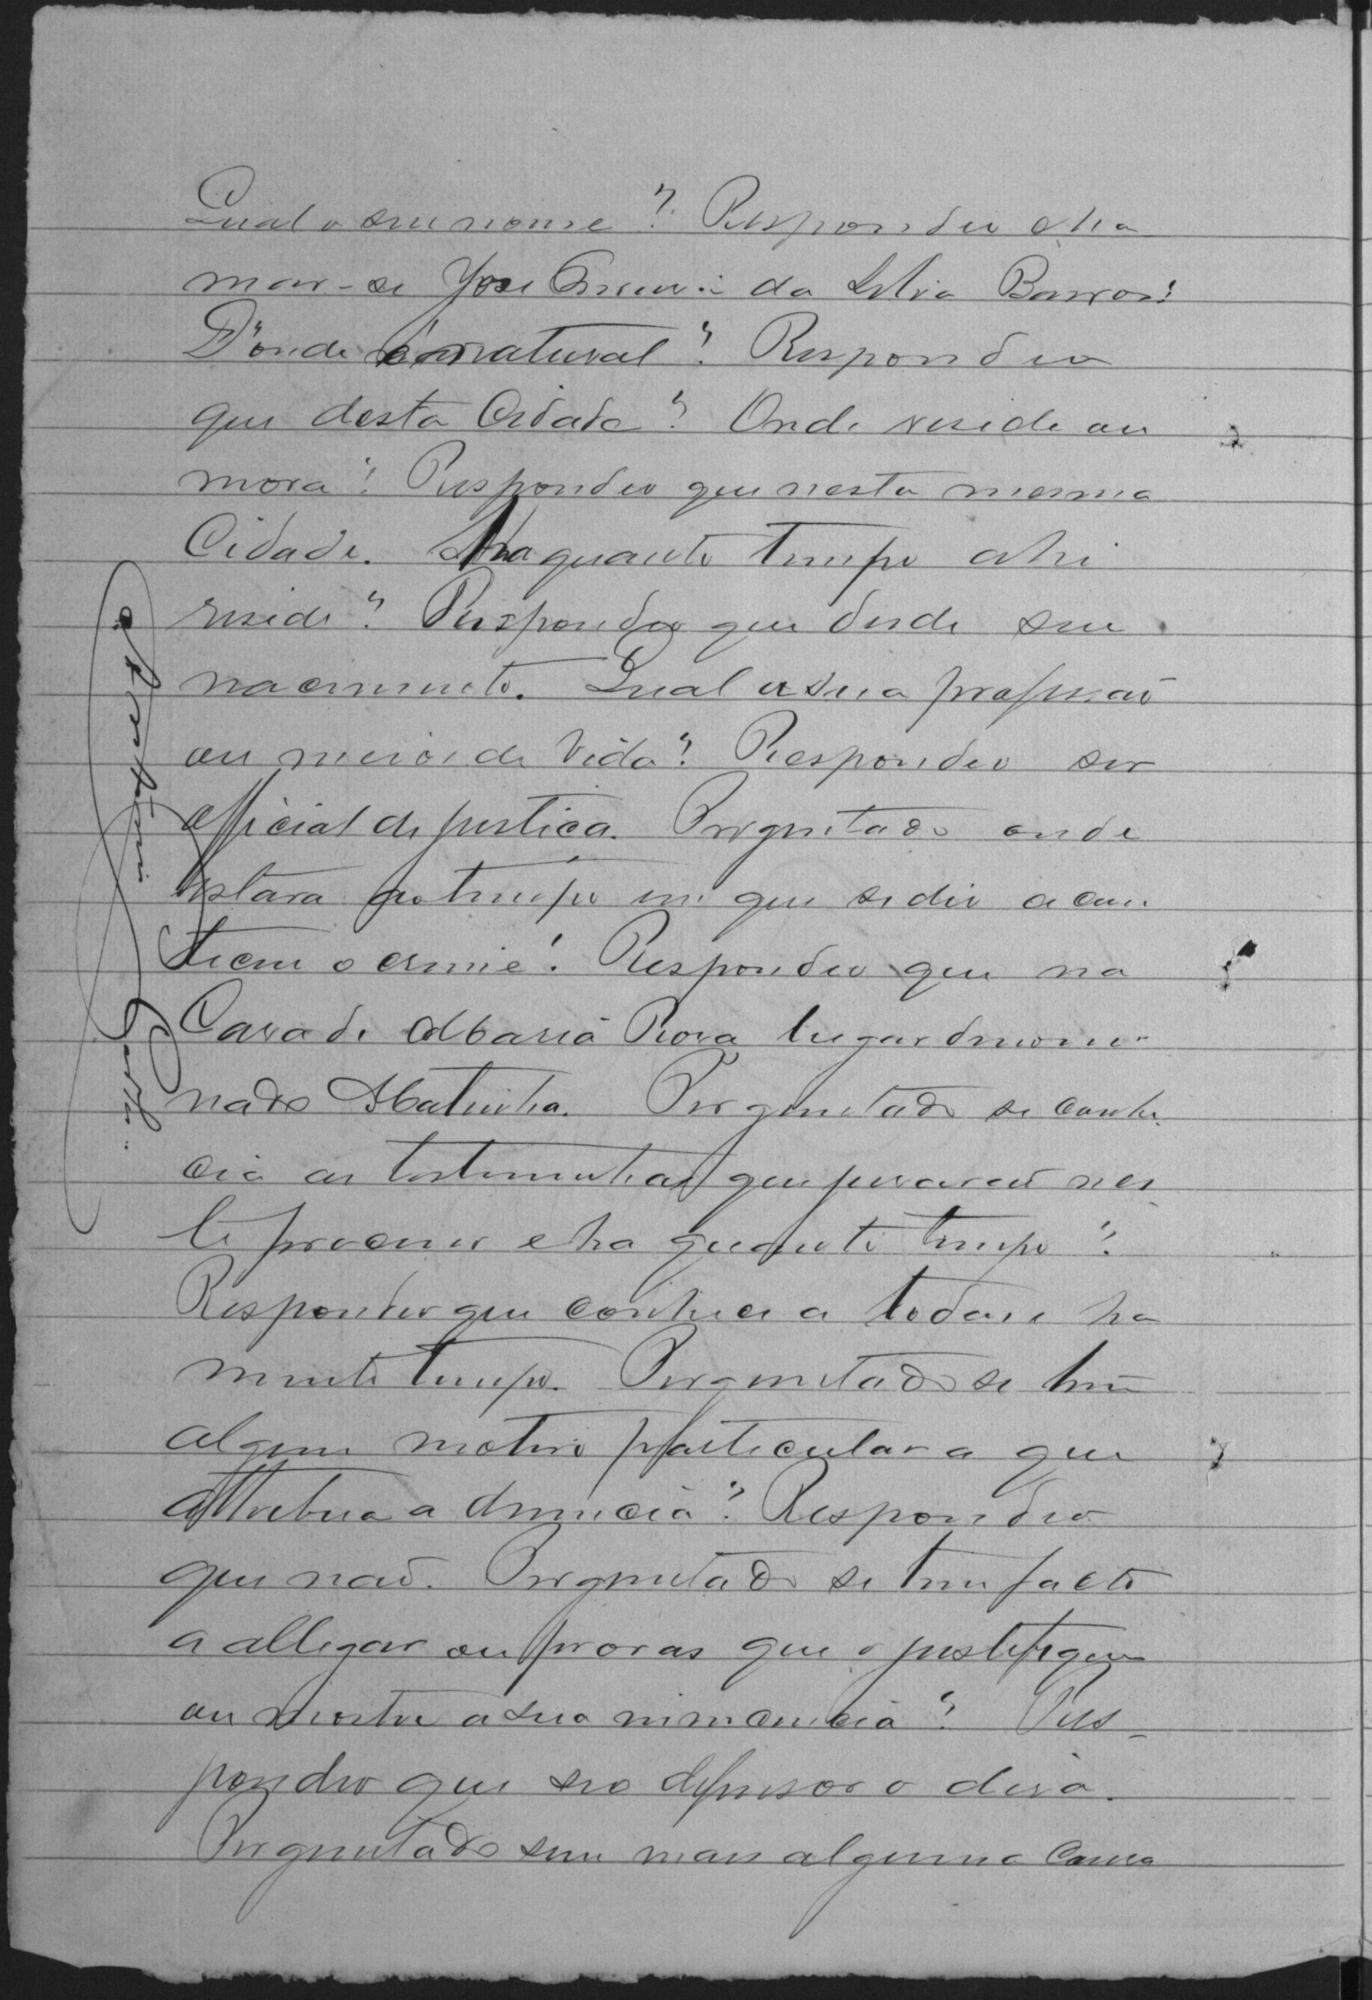 Qual o seu nome? Respondeu cha
mar-se José da Silva Barros.
D'onde é natural? Respondeu
que desta Cidade? Onde reside ou
mora? Respondeu que nesta mesma
Cidade. Ha quanto tempo ahi
reside? Respondeu que desde seu
nacimento. Qual a sua profissão
ou meios de vida? Respondeu ser
official de justiça. Perguntado onde
estava ao tempo em que se diz acon
teceu o crime? Respondeu que na
Casa de Maria Rosa lugar denomi
nado Matinha. Perguntado se conhe
cia as testemunhas que juraram nes
te processo e ha quanto tempo?
Respondeu que conhecia a todas e ha
muito tempo. Perguntado se tem
algum motivo particular a que
attribua a denuncia? Respondeu
que não. Perguntado se tem facto
a allegar ou provas que o justifiquem
ou mostre a sua innocencia? Res-
pondeu que seo defensor o dirá.
Perguntado sem mais alguma cousa